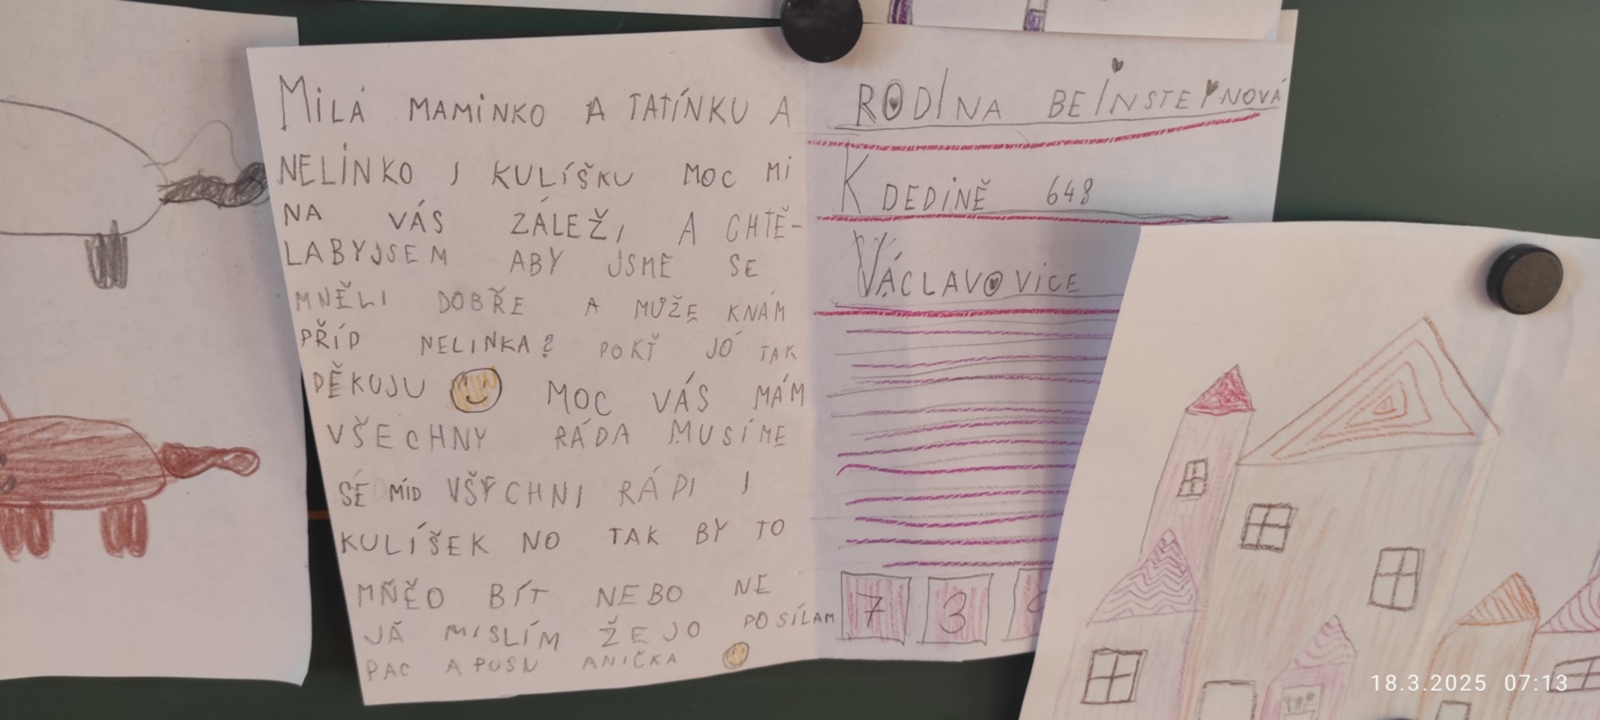 MILÁ MAMINKO A TATÍNKU A
NELINKO I KULÍŠKU MOC MI
NA VÁS ZÁLEŽI, A CHTĚ-
LABYJSEM ABY JSME SE
MNĚLI DOBŘE A MUŽE KNÁM
PŘÍD NELINKA? POKŤ JÓ TAK
DĚKUJU MOC VÁS MÁM
VŠECHNY RÁDA MUSÍME
SE MÍD VŠYCHNI RÁDI I
KULÍŠEK NO TAK BY TO
MŇĚO BÍT NEBO NE
JÁ MISLÍM ŽE JO POSÍLAM
PAC A PUSU ANIČKA
RODINA BEINSTEINOVÁ
K DEDINĚ 648
VÁCLAVOVICE
7 3
18.3.2025 07:13